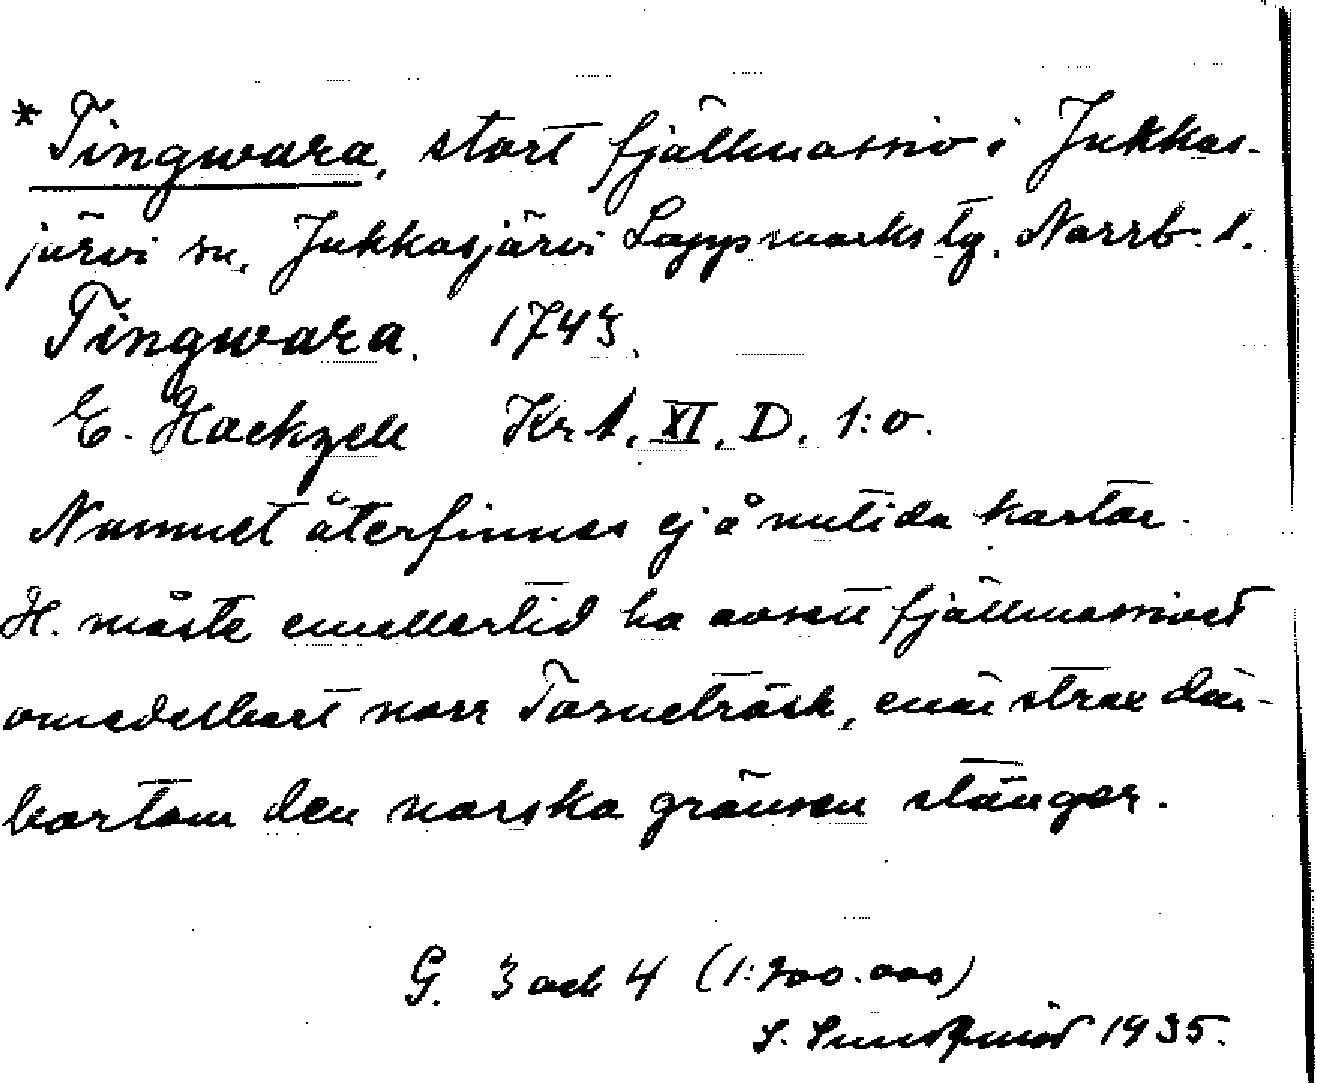 * Tingwara, stort fjällmassiv i Jukkas-
järvi sn, Jukkasjärvi Lappmarks tg. Norrb. l.
Tingwara. 1743.
E. Hackzell Kr. A. XI. D. 1:o.
Namnet återfinnes ej å nutida kartor.
H. måste emellertid ha avsett fjällmassivet
omedelbart norr Torneträsk, enär strax där-
bortom den norska gränsen stänger.
G. 3 och 4 (1:200.000)
S. Sundqvist 1935.